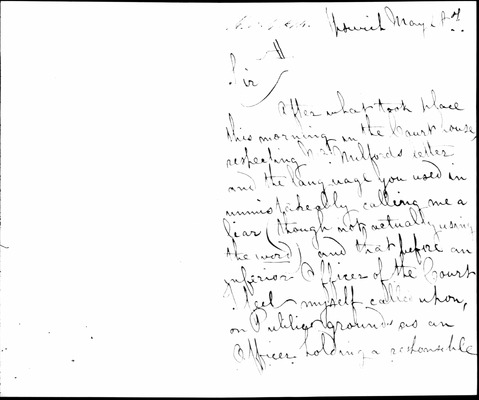 Ipswich May
Sir
After what took place
this morning in the Court house,
respecting Mr Milfords letter
and the language you used in
unmistakeably calling me a
liar (though not actually using
the word) and that before an
inferior Officer of the Court
I feel myself called upon,
on Public grounds as an
Officer holding a responsible